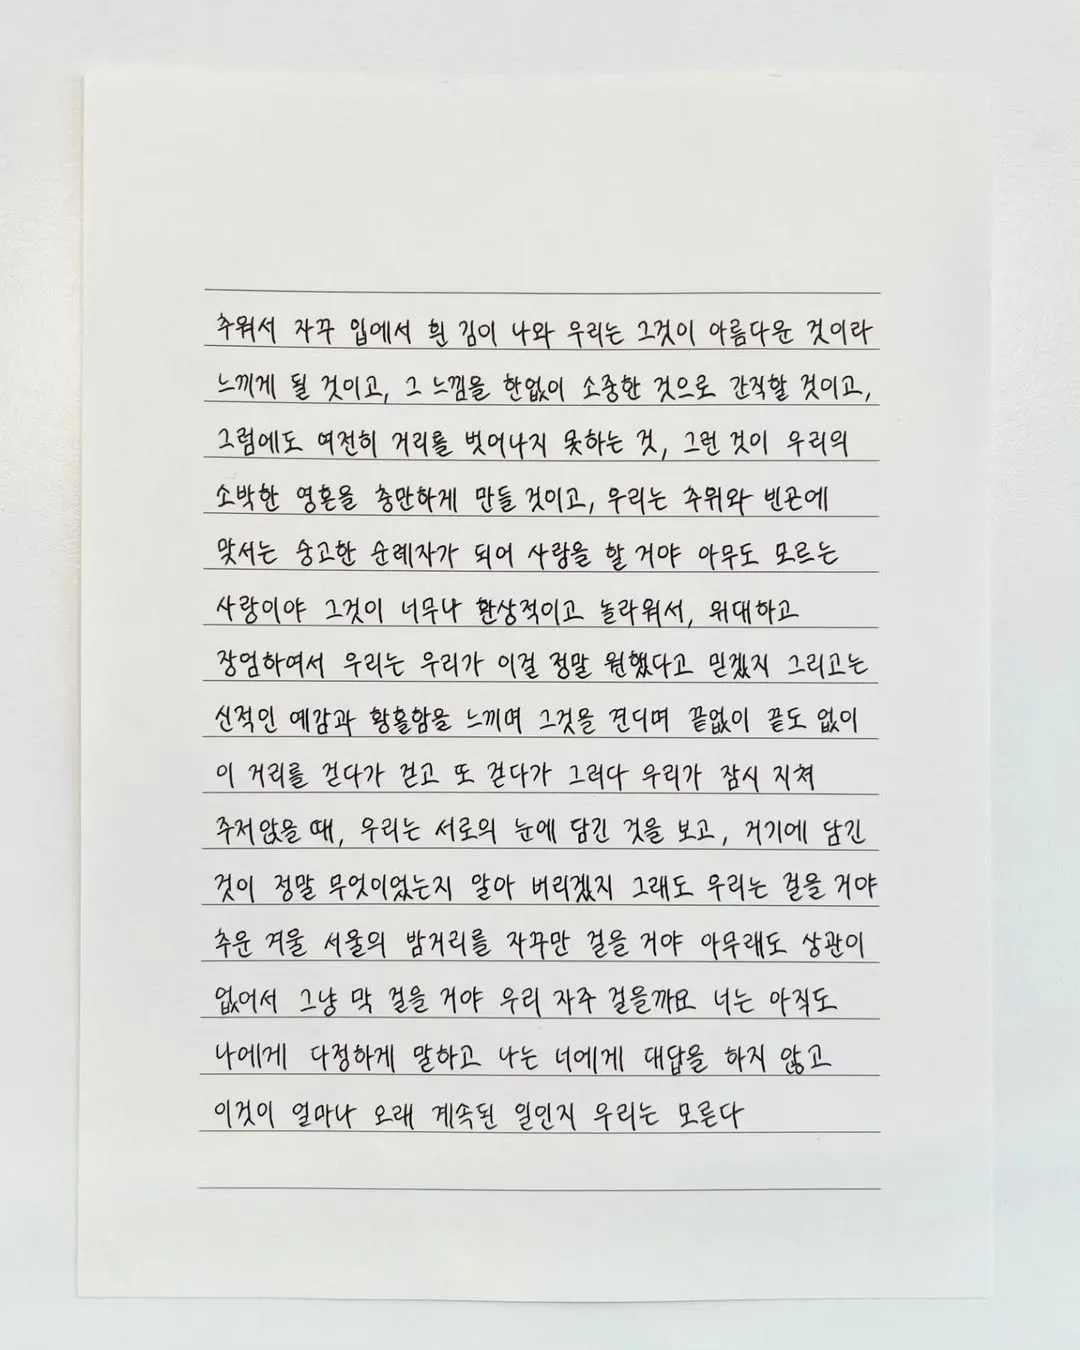 추워서 자꾸 입에서 흰 김이 나와 우리는 그것이 아름다운 것이라
느끼게 될 것이고, 그 느낌을 한없이 소중한 것으로 간직할 것이고,
그럼에도 여전히 거리를 벗어나지 못하는 것, 그런 것이 우리의
소박한 영혼을 충만하게 만들 것이고, 우리는 추위와 빈곤에
맞서는 숭고한 순례자가 되어 사랑을 할 거야 아무도 모르는
사랑이야 그것이 너무나 환상적이고 놀라워서, 위대하고
장엄하여서 우리는 우리가 이걸 정말 원했다고 믿겠지 그리고는
신적인 예감과 황홀함을 느끼며 그것을 견디며 끝없이 끝도 없이
이 거리를 걷다가 걷고 또 걷다가 그러다 우리가 잠시 지쳐
주저앉을 때, 우리는 서로의 눈에 담긴 것을 보고, 거기에 담긴
것이 정말 무엇이었는지 알아 버리겠지 그래도 우리는 걸을 거야
추운 겨울 서울의 밤거리를 자꾸만 걸을 거야 아무래도 상관이
없어서 그냥 막 걸을 거야 우리 자주 걸을까요 너는 아직도
나에게 다정하게 말하고 나는 너에게 대답을 하지 않고
이것이 얼마나 오래 계속된 일인지 우리는 모른다